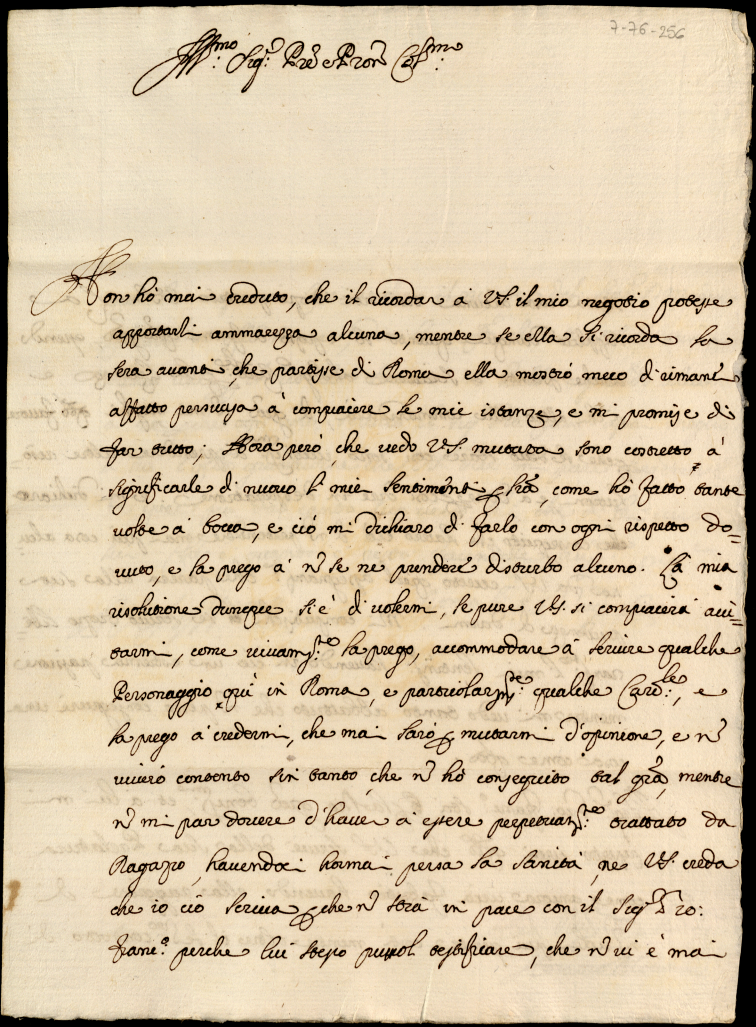 7-76-256
Ill.mo Sig.r Pre e Pron Col.mo
Non hò mai creduto, che il ricordar à VS. il mio negotio potesse
apportarli ammarezza alcuna, mentre se ella si ricorda la
sera avanti, che partisse di Roma ella mostrò meco di rimaner
affatto persuasa à compiacere le mie istanze, e mi promise di
far tutto; Hora però, che vedo VS. mutata sono costretto à
significarle di nuovo li miei sentimenti, come hò fatto tante
volte à bocca, e ciò mi dichiaro di farlo con ogni rispetto do=
vuto, e la prego à n se ne prendere disturbo alcuno. La mia
risolutione dunque si è di volermi, se pure VS. si compiacerà aiu=
tarmi, come vivam.te la prego, accommodare à servire qualche
Personaggio quì in Roma, e particolarm.te qualche Card.le, e
la prego à credermi, che mai sarò p mutarmi d'opinione, e n
viverò contento sin tanto, che n hò conseguito tal gra, mentre
n mi par dovere d'haver à essere perpetuam.te trattato da
Ragazzo, havendoci hormai persa la sanità, ne VS. creda
che io ciò scriva p che n stia in pace con il Sig.r Gio:
Fran.o perche lui stesso puol testificare, che n vi è mai